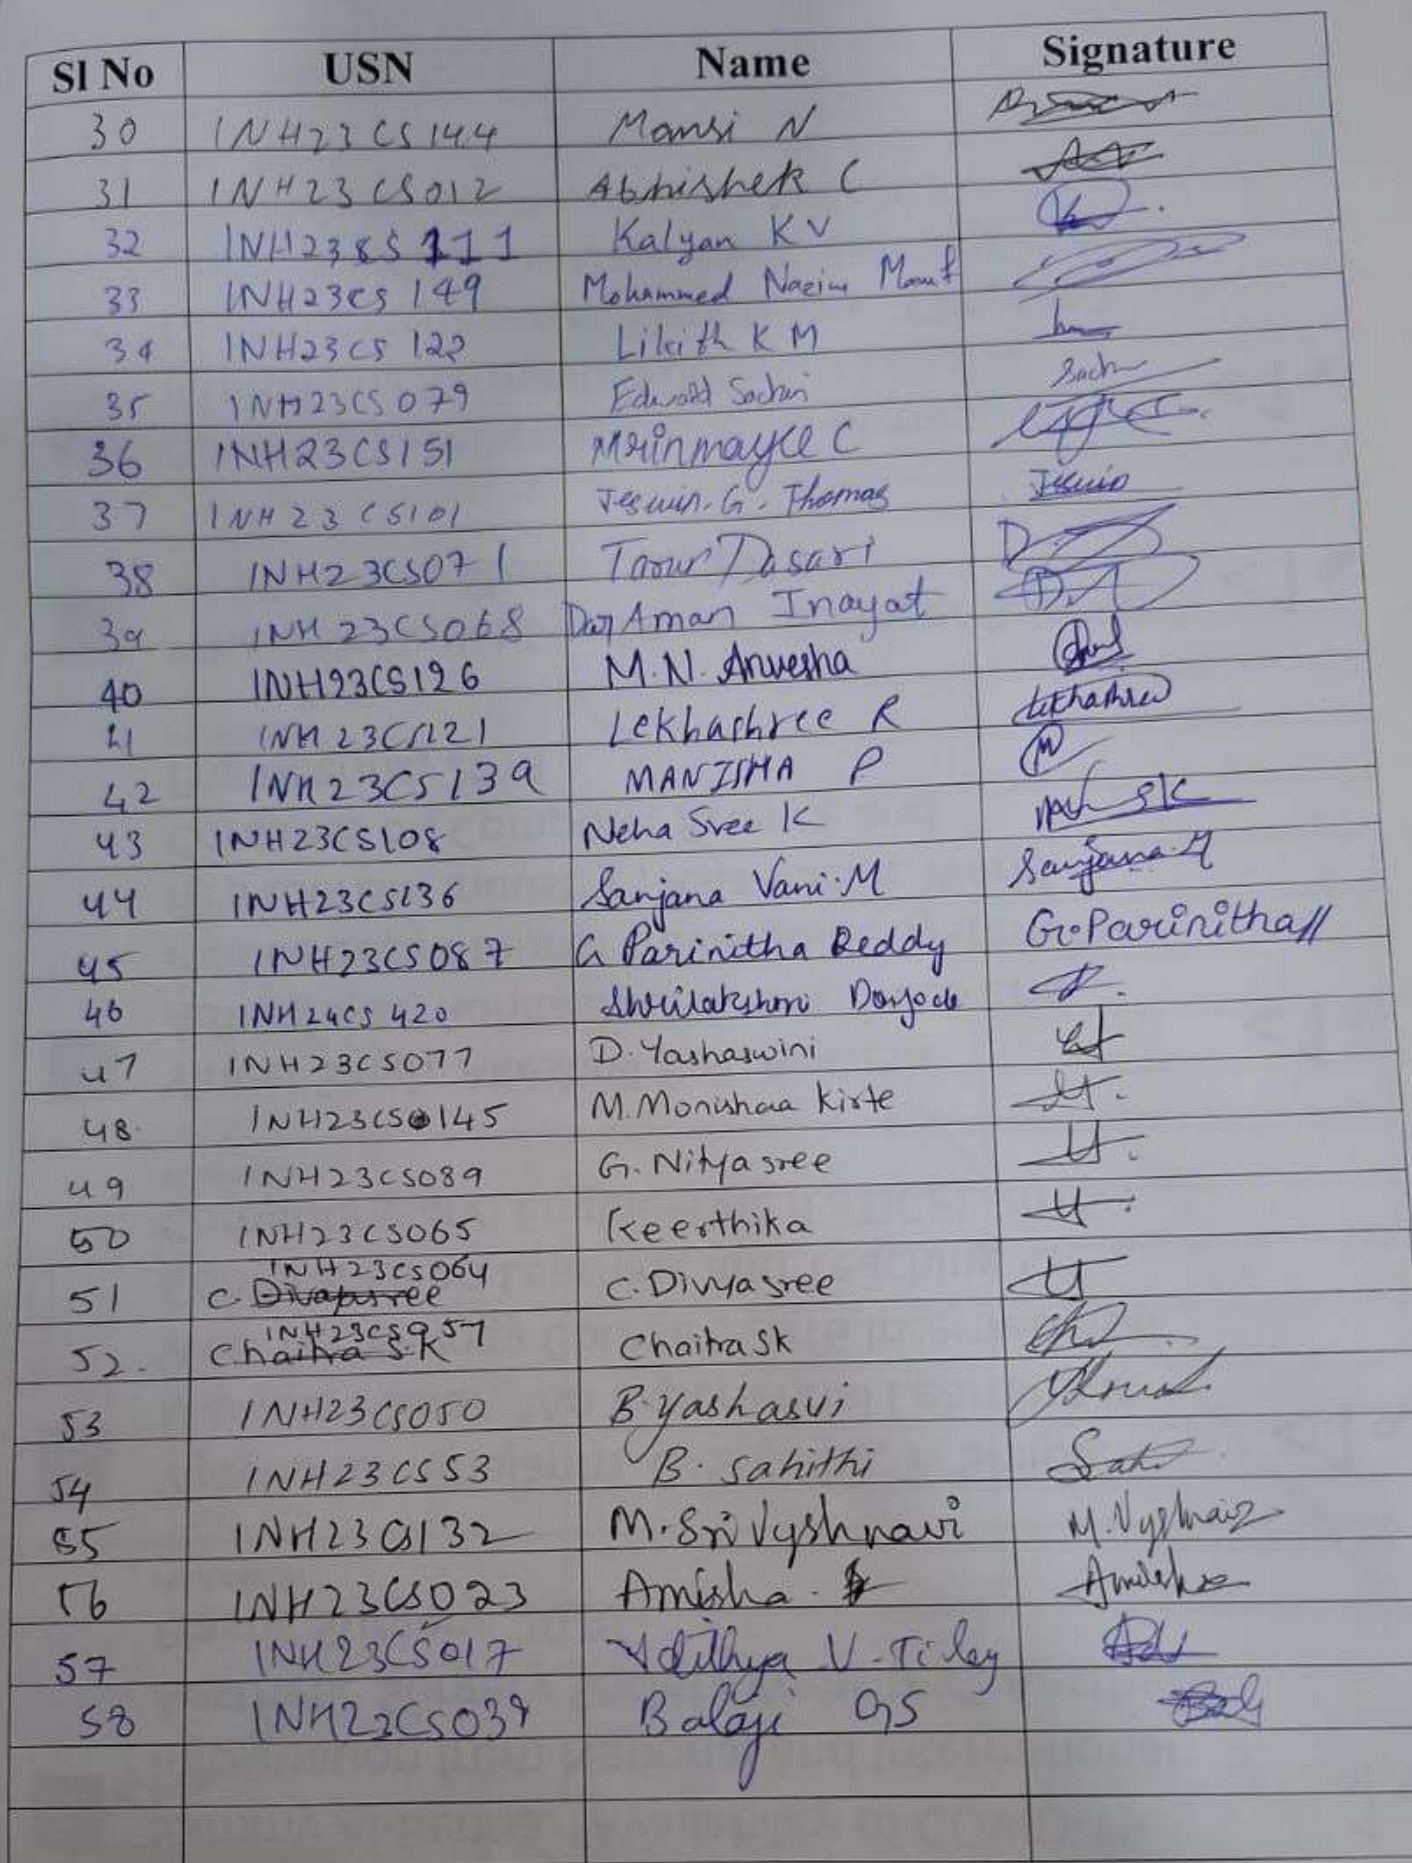 Sl No USN Name Signature
30 1NH23CS144 Mansi N
31 1NH23CS012 Abhishek C
32 1NH23CS111 Kalyan K V
33 1NH23CS149 Mohammed Nazim
34 1NH23CS122 Likith K M
35 1NH23CS079 Edward Sachin Sach
36 1NH23CS151 Mrinmayee C
37 1NH23CS101 Jeswin. G. Thomas Jeswin
38 1NH23CS071 Tarun Dasari
39 1NH23CS068 Dar Aman Inayat
40 1NH23CS126 M.N. Anvesha
41 1NH23CS121 Lekhashree R Lekhashree
42 1NH23CS139 MANISHA P
43 1NH23CS108 Neha Sree K
44 1NH23CS136 Sanjana Vani.M Sanjana.M
45 1NH23CS087 G Parinitha Reddy G.Parinitha//
46 1NH24CS420 Shrilakshmi
47 1NH23CS077 D.Yashaswini
48. 1NH23CS0145 M.Monishaa Kirte
49 1NH23CS089 G.Nityasree
50 1NH23CS065 Keerthika
1NH23CS064
51 C. C.Divyasree
1NH23CS057
52. Chaitra S.K Chaitra SK
53 1NH23CS050 B.Yashasvi
54 1NH23CS53 B. Sahithi
55 1NH23CS132 M.Sri Vyshnavi M.Vyshnavi
56 1NH23CS023 Amisha.
57 1NH23CS017 Adithya V-Tiley
58 1NH23CS039 Balaji GS